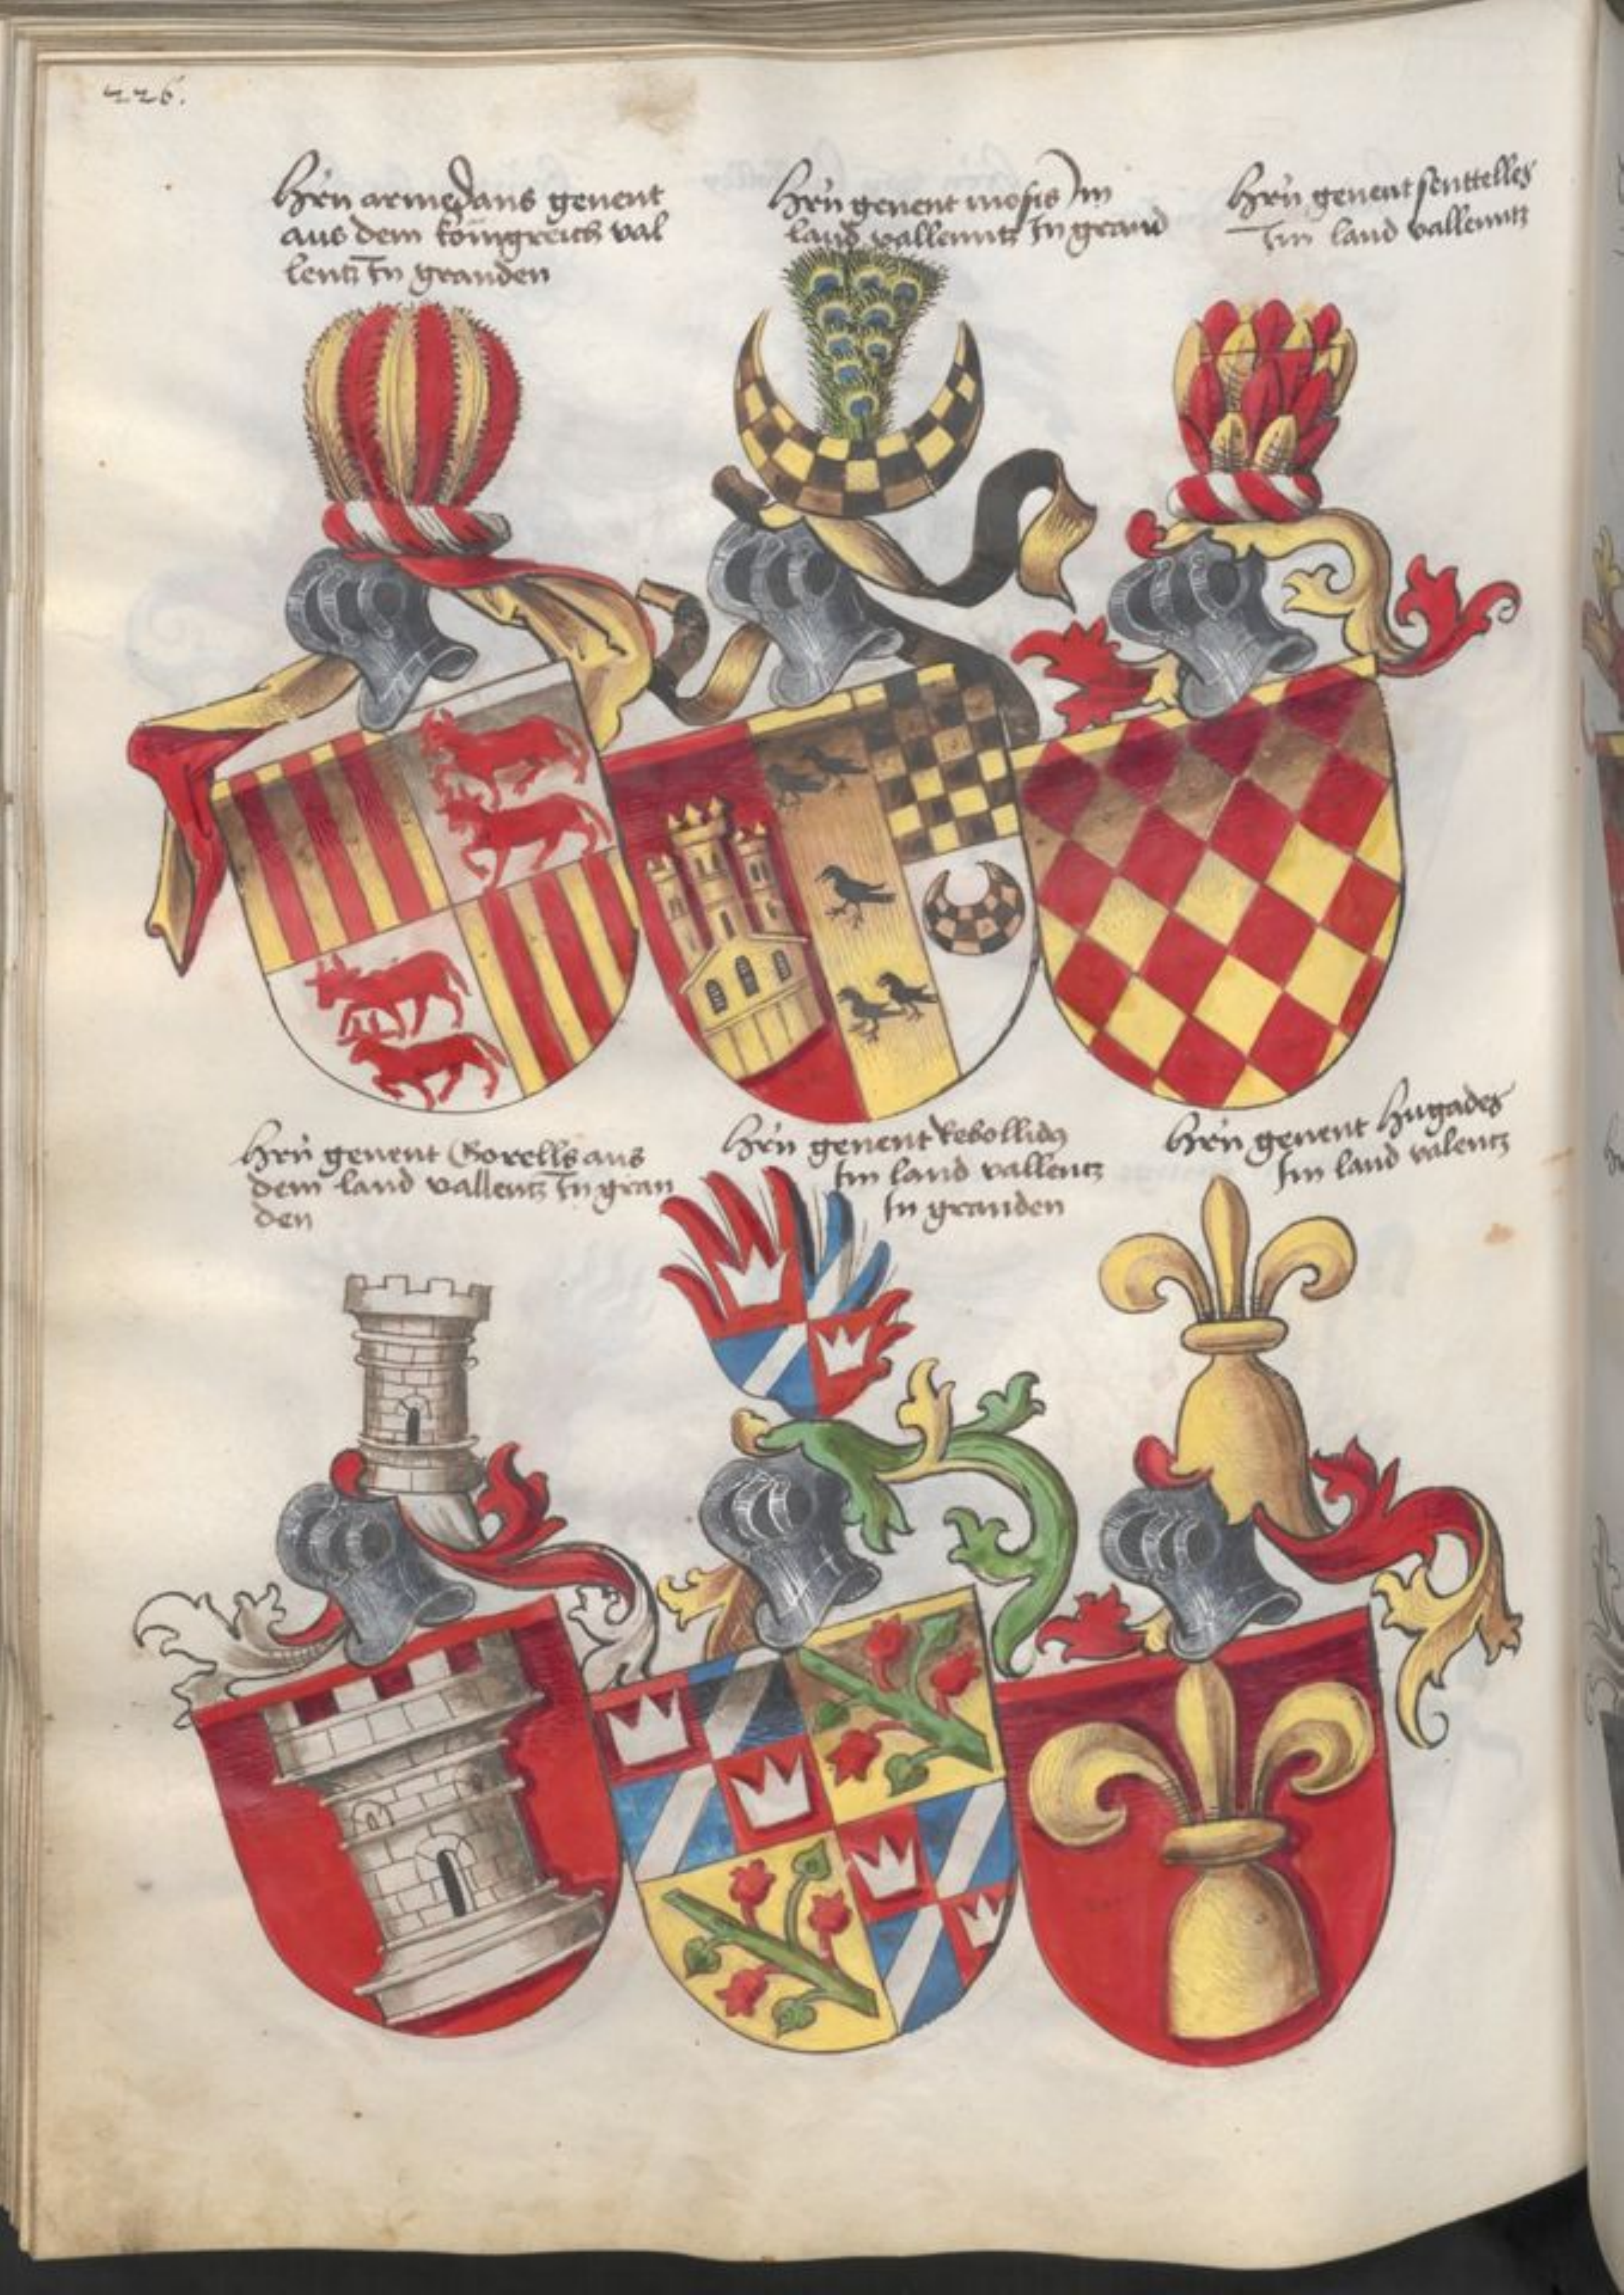 226.
Hrn armejans genent
aus dem konigreich val
lentz In granden
Hrn genent mosis Im
land vallenntz In grand
Hrn genent senttelles
Im land vallenntz
Hrn genent Gorells aus
dem land vallentz In gran
den
Hrn genent Rebollidz
Im land vallentz
In granden
Hrn genent Hugades
Im land valentz